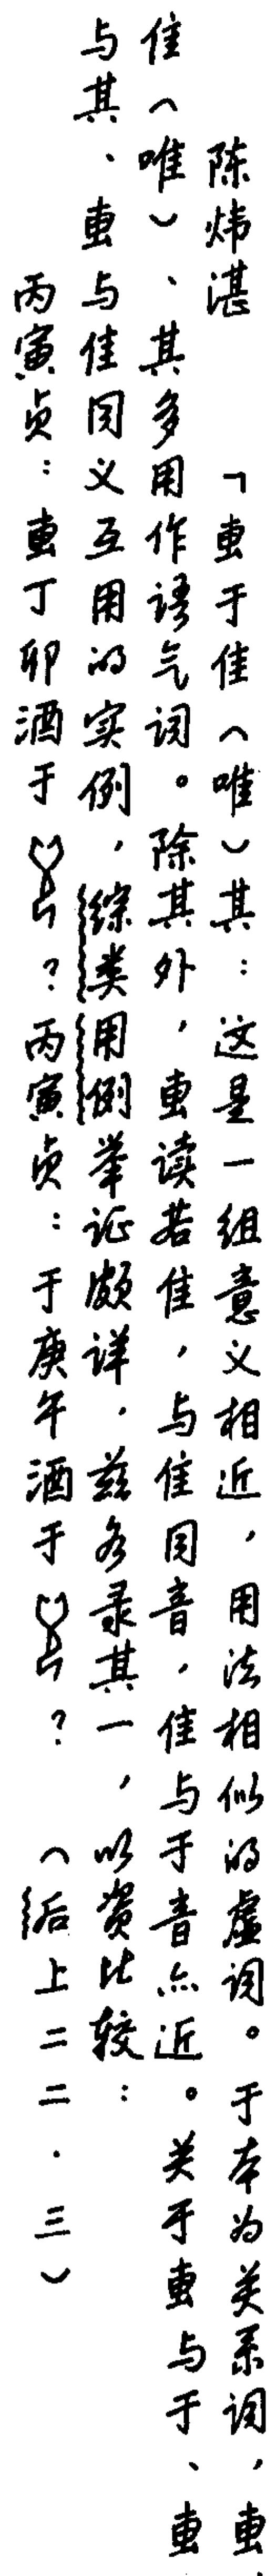 陈炜湛　「叀于隹（唯）其：这是一组意义相近，用法相似的虚词。于本为关系词，叀、
隹（唯）、其多用作语气词。除其外，叀读若隹，与隹同音，隹与于音亦近。关于叀与于、叀
与其、叀与隹同义互用的实例，综类用例举证颇详，兹各录其一，以资比较：
丙寅贞：叀丁卯酒于？丙寅贞：于庚午酒于？（后上二二．三）